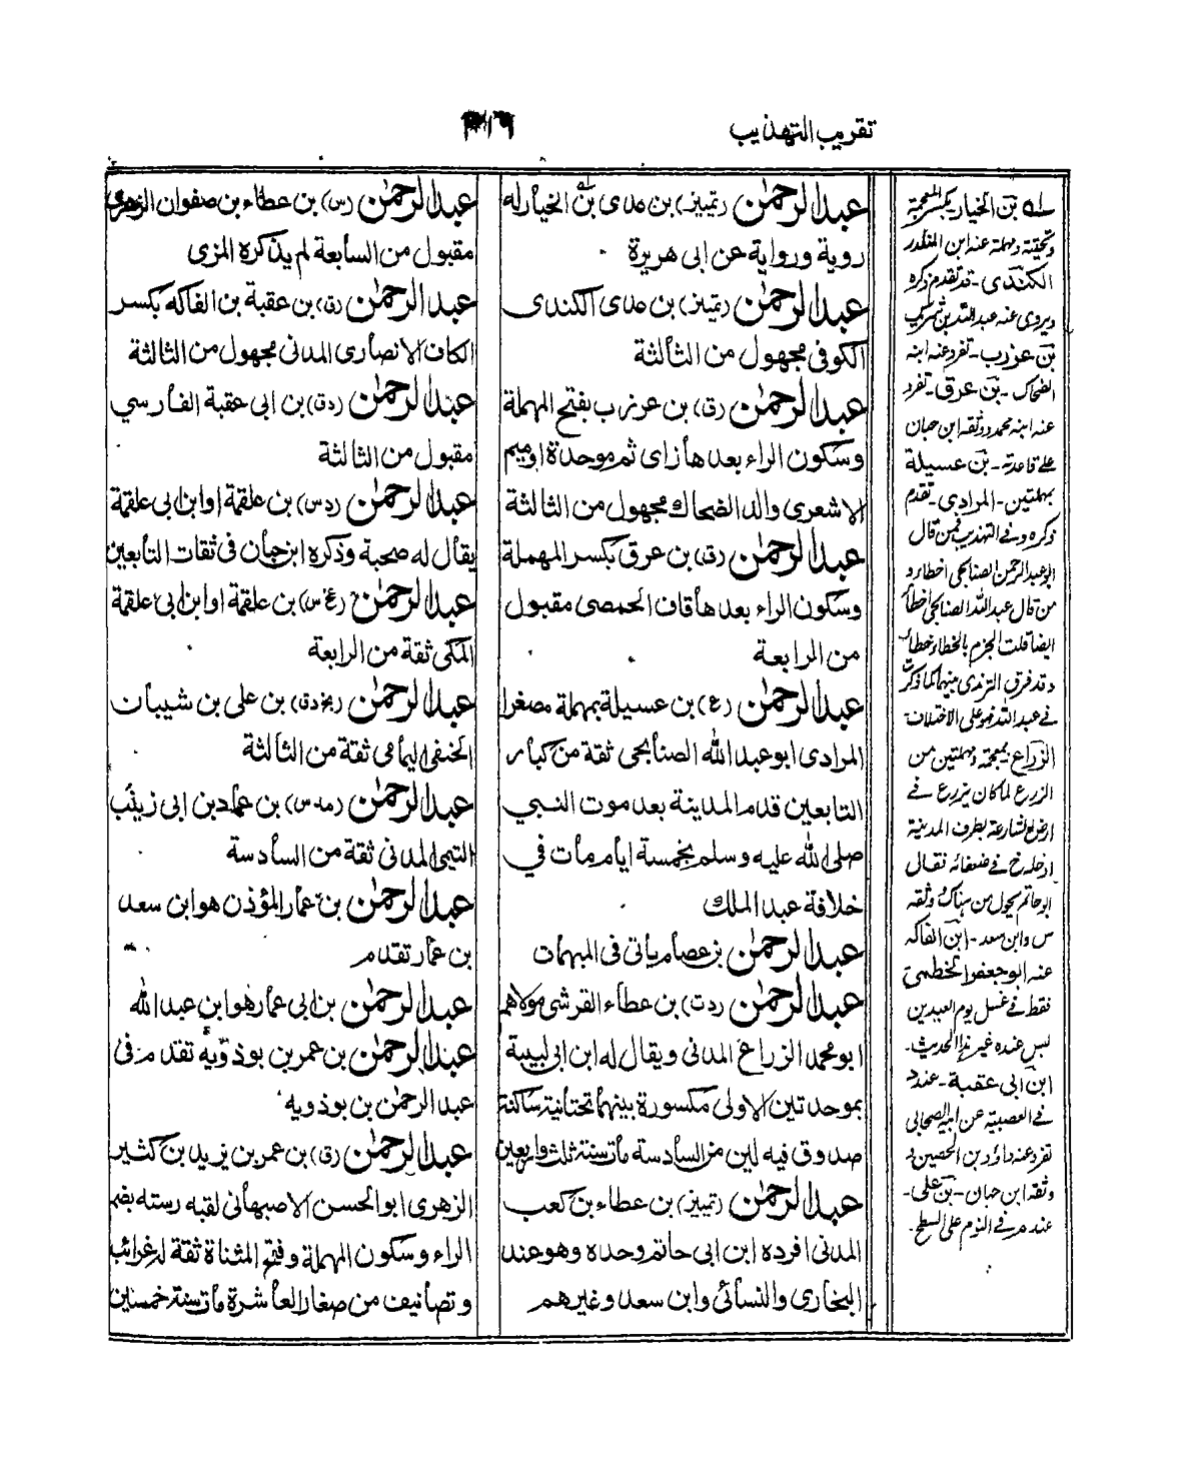 تقريب التهذيب
٣١٦
عبدالرحمٰن (تمييز) بن عدى بن الخيار له
روية ورواية عن ابى هريرة
عبدالرحمٰن (تميز) بن عدى الكندى
الكوفى مجهول من الثالثة
عبدالرحمٰن (ق) بن عرزب بفتح المهملة
وسكون الراء بعدها زاى ثم موحدة او ميم
الاشعرى والد الضحاك مجهول من الثالثة
عبدالرحمٰن (دق) بن عرق بكسر المهملة
وسكون الراء بعدها قاف الحمصى مقبول
من الرابعة
عبدالرحمٰن (ع) بن عسيلة بمهملة مصغرا
المرادى ابو عبد الله الصنابحى ثقة من كبار
التابعين قدم المدينة بعد موت النبي
صلى الله عليه وسلم بخمسة ايام مات في
خلافة عبد الملك
عبدالرحمٰن بن عصام ياتى فى المبهمات
عبدالرحمٰن (دت) بن عطاء القرشى مولاهم
ابو محمد الزراع المدنى ويقال له ابن ابى لبيبة
بموحدتين الاولى مكسورة بينهما تحتانية ساكنة
صدوق فيه لين من السادسة مات سنة ثلث واربعين
عبدالرحمٰن (تمييز) بن عطاء بن كعب
المدنى افرده ابن ابى حاتم وحده وهو عند
البخارى والنسائى وابن سعد وغيرهم
عبدالرحمٰن (س) بن عطاء بن صفوان الزهرى
مقبول من السابعة لم يذكره المزى
عبدالرحمٰن (ق) بن عقبة بن الفاكه بكسر
الكاف الانصارى المدنى مجهول من الثالثة
عبدالرحمٰن (دق) بن ابى عقبة الفارسي
مقبول من الثالثة
عبدالرحمٰن (دس) بن علقمة او ابن ابى علقمة
يقال له صحبة وذكره ابن حبان فى ثقات التابعين
عبدالرحمٰن بن علقمة او ابن ابى علقمة
المكى ثقة من الرابعة
عبدالرحمٰن (بخ دق) بن على بن شيبان
الحنفى اليمامى ثقة من الثالثة
عبدالرحمٰن بن عماد بن ابى زينب
التيمى المدنى ثقة من السادسة
عبدالرحمٰن بن عمار المؤذن هو ابن سعد
بن عمار تقدم
عبدالرحمٰن بن ابى عمار هو ابن عبد الله
عبدالرحمٰن بن عمر بن بوذويه تقدم فى
عبد الرحمٰن بن بوذويه
عبدالرحمٰن (ق) بن عمر بن يزيد بن كثير
الزهرى ابو الحسن الاصبهانى لقبه رسته بضم
الراء وسكون المهملة وفتح المثناة ثقة له غرائب
وتصانيف من صغار العاشرة مات سنة خمسين
بن الخيار بكسر المعجمة
عنه ابن المنكدر
الكندى - قد تقدم ذكره
ويروى عنه عبد الله بن
بن عرزب - تفرد عنه ابنه
الضحاك - بن عرق - تفرد
عنه ابنه محمد ووثقه ابن حبان
على قاعدته - بن عسيلة
بمهملتين - المرادى - تقدم
ذكره وفى التهذيب فمن قال
ابو عبد الرحمن الصنابحى اخطا و
من قال عبد الله الصنابحى اخطا
ايضا قلت الجزم بالخطاء خطأ
وقد فرق الترمذى بينهما كما ذكرت
فى عبد الله فهو على الاختلاف
الزراع بمعجمة ومهملتين من
الزرع لما كان يزرع في
ارض بطرف المدينة
ادخله خ فى ضعفائه فقال
ابو حاتم يحول من هناك وثقه
س وابن سعد - ابن الفاكه
عنه ابو جعفر الخطمى
فقط فى غسل يوم العيدين
ليس عنده غير هذا الحديث -
ابن ابى عقبة - عند د
فى العصبية عن ابيه الصحابى
تفرد عنه داؤد بن الحصين و
وثقه ابن حبان - بن على -
عنده فى النوم على السطح -